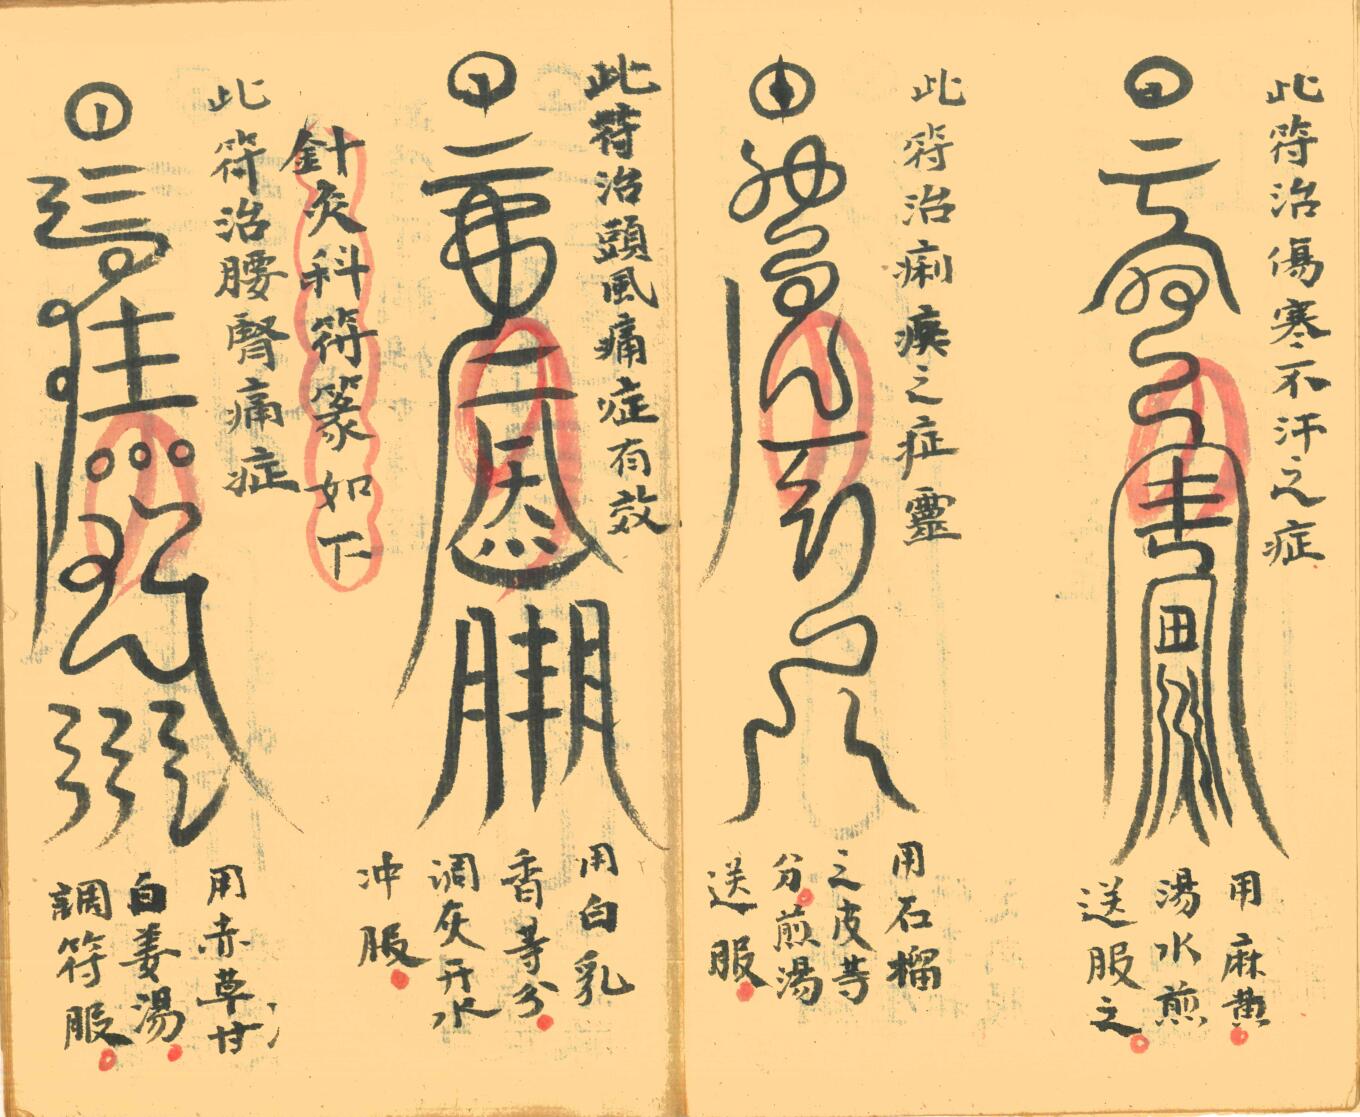 此符治傷寒不汗之症
用麻黄
湯水煎
送服之
此符治痢疾之症靈
用石榴
之皮等
分煎湯
送服
此符治頭風痛症有效
用白乳
香等分
调灰开水
冲服
針灸科符篆如下
此符治腰腎痛症
用赤草甘
白姜湯
調符服